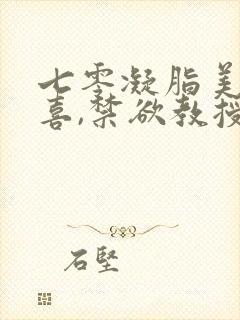 七零凝脂美
喜,禁欲教授
石坚